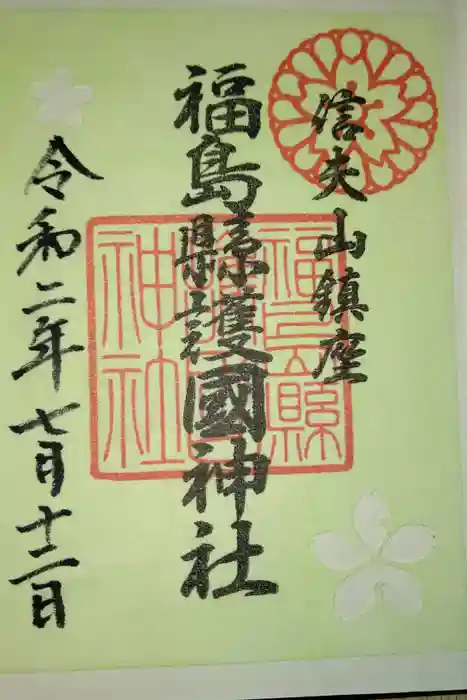 信夫山鎮座
福島縣護國神社
令和二年七月十二日
福島縣護國神社